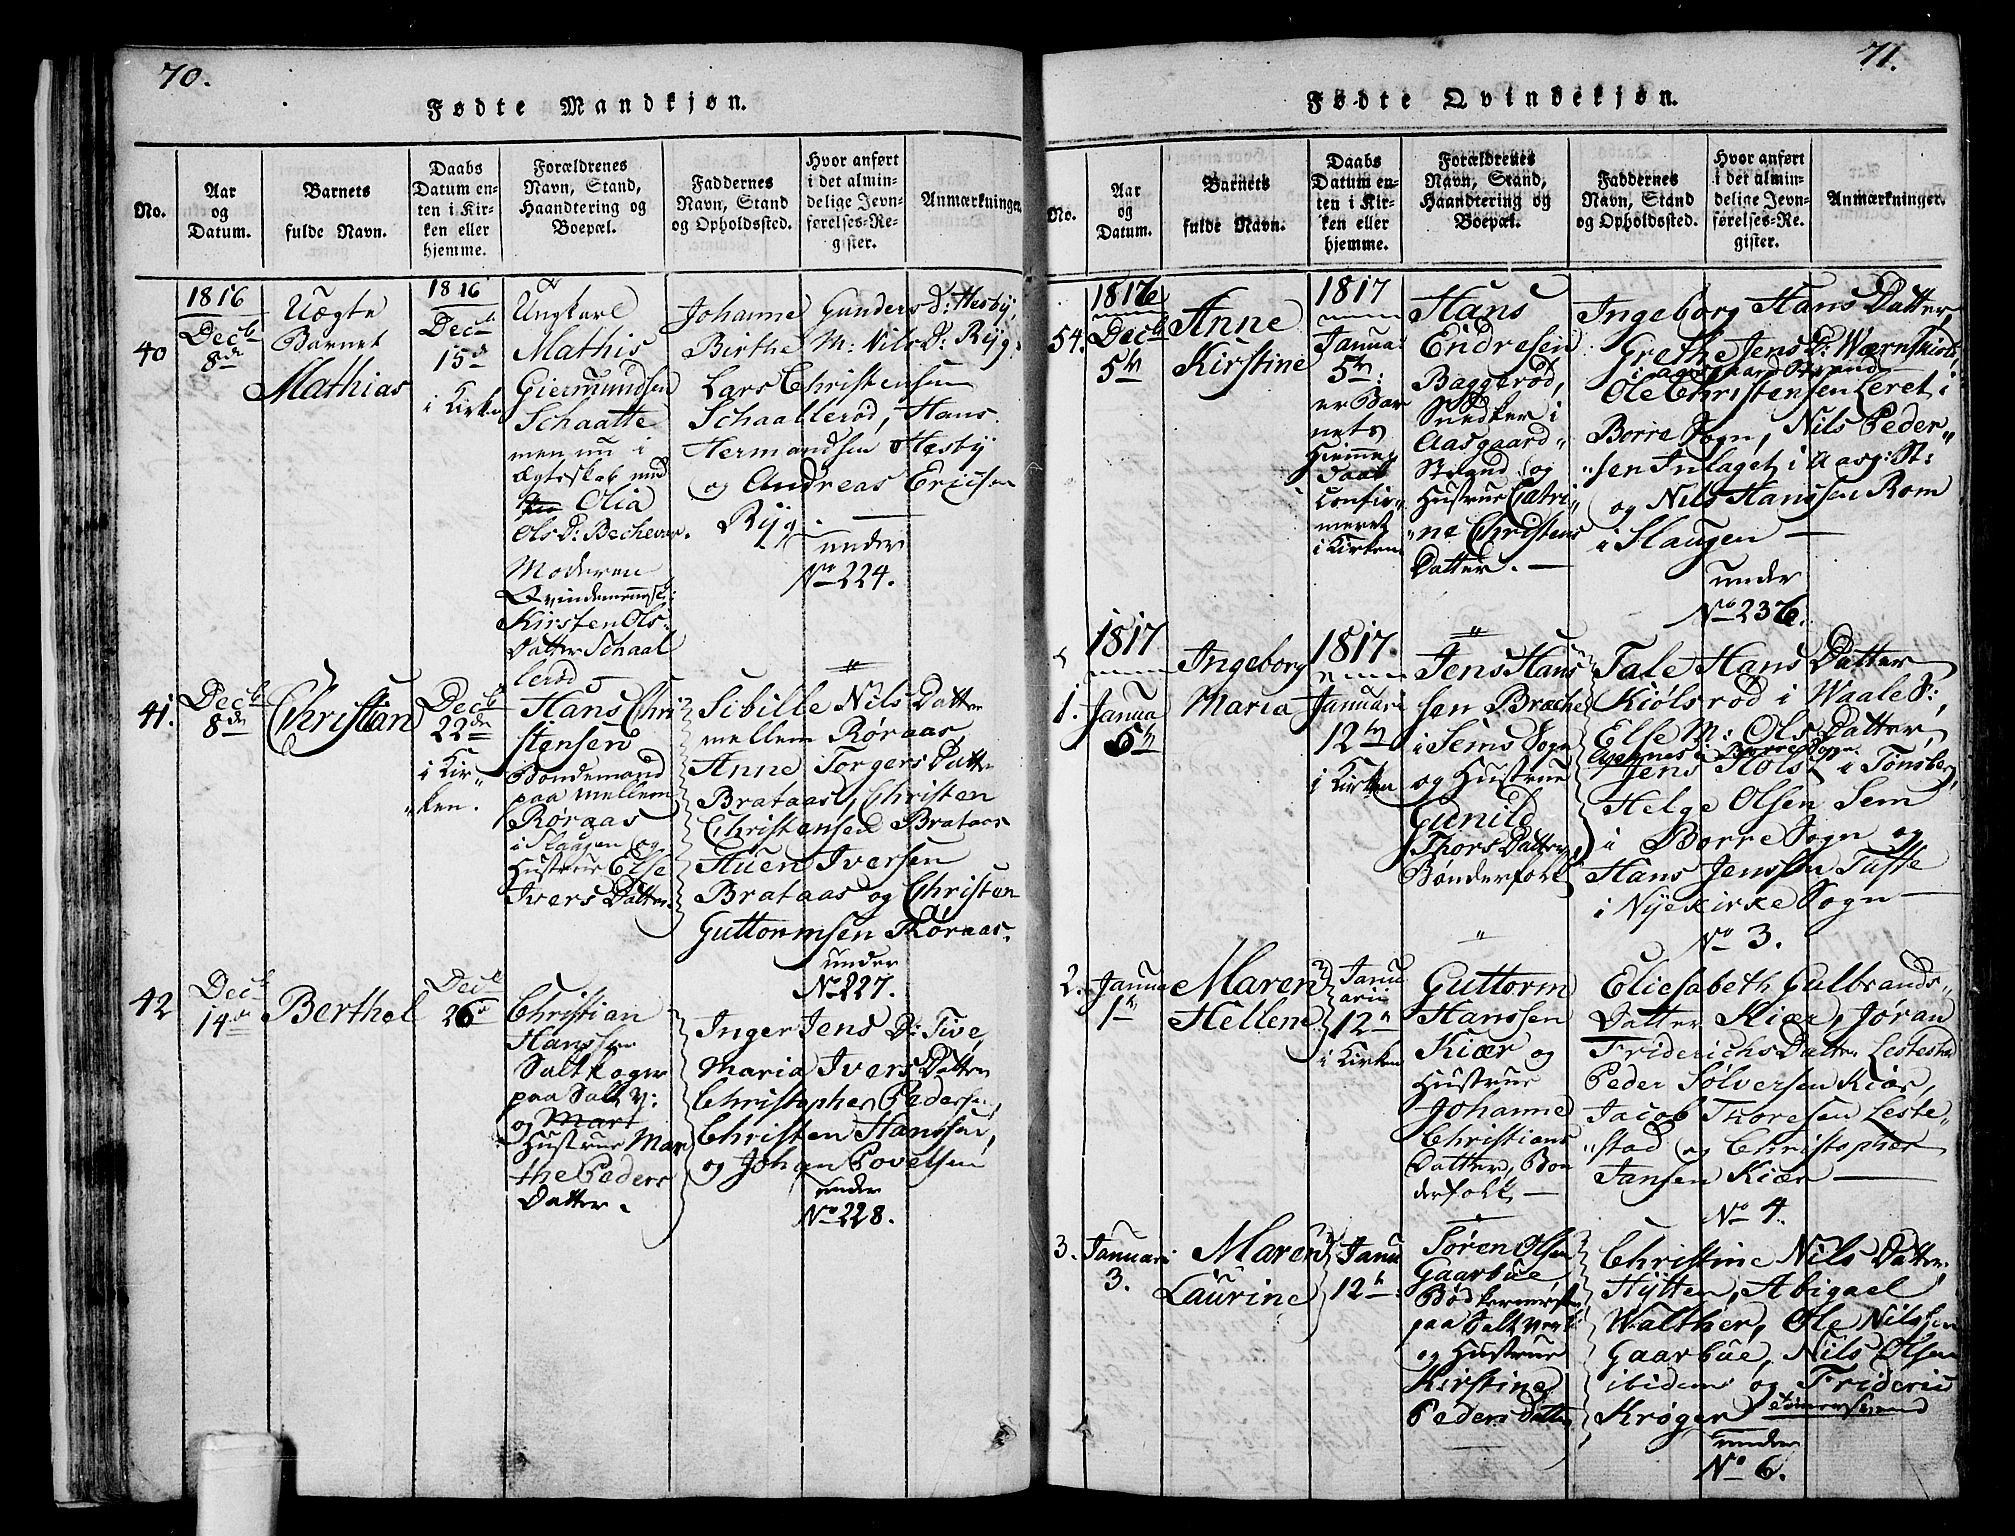 70.
Fødte Mandkjøn.
No.
Aar
og
Datum.
Barnets
fulde Navn.
Daabs
Datum en-
ten i Kir-
ken eller
hjemme.
Forældrenes
Navn, Stand,
Haandtering og
Boepæl.
Faddernes
Navn, Stand
og Opholdssted.
Hvor anført
i det almin-
delige Jevn-
førelses-Re-
gister.
Anmærkninger.
40
1816
Decb
8de
Uægte
Barnet
Mathias
1816
Decb
15d
i Kirke
Ungkarl
Mathis
Giermundsen
Schaatte
men nu i
Ægteskab med
Olia
Ols D: Bechevar.
Moderen
Qvindemennesk:
Kirsten Ols-
Datter Schaal
lerød
Johanne Gunders D: Hesby,
Birthe M: Nils D: Ryg,
Lars Christensen
Schaallerød, Hans
Hermandsen Hesby
og Andreas Ericsen
Ryg.
under
No 224.
41.
Decb
8de
Christian
Decb
22de
i Kir-
ken.
Hans Chri
stensen
Bondemand
paa mellem
Røraas
i Slaugen og
Hustrue Else
Ivers Datter.
Sibille Nils Datter
mellem Røraas,
Anne Torgers Datter
Brataas, Christen
Christensen Brataas
Huen Iversen
Brataas og Christen
Guttormsen Røraas.
under
No 227.
42
Decb
14de
Berthel
Decb
26d
Christian
Hanssen
Saltkoger
paa Salt V:
og Mart
Hustrue Mar
the Peders
Datter.
Inger Jens D: Tive,
Maria Ivers Datter
Christopher Pedersen,
Christen Hanssen,
og Johan Povelsen
under
No 228.
71.
Fødte Qvindekjøn.
No.
Aar
og
Datum.
Barnets
fulde Navn.
Daabs
Datum en-
ten i Kir-
ken eller
hjemme.
Forældrenes
Navn, Stand,
Haandtering og
Boepæl.
Faddernes
Navn, Stand
og Opholdssted.
Hvor anført
i det almin-
delige Jevn-
førelses-Re-
gister.
Anmærkninger.
54.
1816
Decb
5th
Anne
Kirstine
1817
Januar
5th:
er Bar
nets
Hiemme
daab
confir-
meret
i Kirken
Hans
Endresen
Baggerød,
Snedker i
Aasgaard-
Strand og
Hustrue Catri
ne Christens
Datter.
Ingeborg Hans Datter,
Grethe Jens D: Wærnskiold
i Aasgaard Strand
Ole Christensen Leret i
Borre Sogn, Nils Peder-
sen Inlaget i Aasg: St:
og Nils Hanssen Rom
i Slaugen
under
No 236.
1817
1.
Janua
5th
Ingeborg
Maria
1817.
Januari
12th
i Kirken
Jens Hans
sen Brache
i Sems Sogn
og Hustrue
Gunild
Thors Datter
Bønderfolk
Tale Hans Datter
Kiølsrød i Waale S:,
Else M: Ols Datter,
i Borre Sogn
Jens Holst i Tønsberg,
Helge Olsen Sem
i Borre Sogn og
Hans Jenssen Tufte
i Nyekirke Sogn
No 3.
2.
Janua
1th
Maren
Hellene
Janu
arii
12th
i Kirken
Guttorm
Hanssen
Kiær og
Hustrue
Johanne
Christians
Datter, Bøn
derfolk
Eliesabeth Gulbrands-
Datter Kiær, Jøran
Friderichs Datter Lestestad
Peder Sølversen Kiær,
Jacob Thoresen Leste-
stad og Christopher
Jansen Kiær
No 4.
3.
Januari
3.
Maren
Laurine
Janu
12th
Søren Olsen
Gaarbue
Bødkermest
paa Saltverk
og Hustrue
Kirstine
Peders Datter
Christine Nils Datter
Hytten, Abigael
Walther, Ole Nilssen
Gaarbue, Nils Olsen
ibidem og Frideric
Krøger
under
No 6.